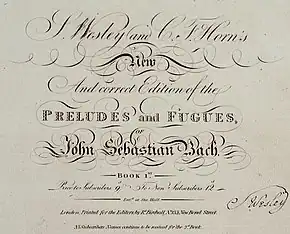 S. Wesley and C. F. Horn's
New
And correct Edition of the
PRELUDES and FUGUES,
OF
John Sebastian Bach.
BOOK 1st
Price to Subscribers 9s To Non Subscribers 12s
Ent. at Sta. Hall
London, Printed for the Editors by Rt. Birchall, No. 133, New Bond Street.
N.B. Subscribers Names continue to be received for the 2d Book.
S Wesley